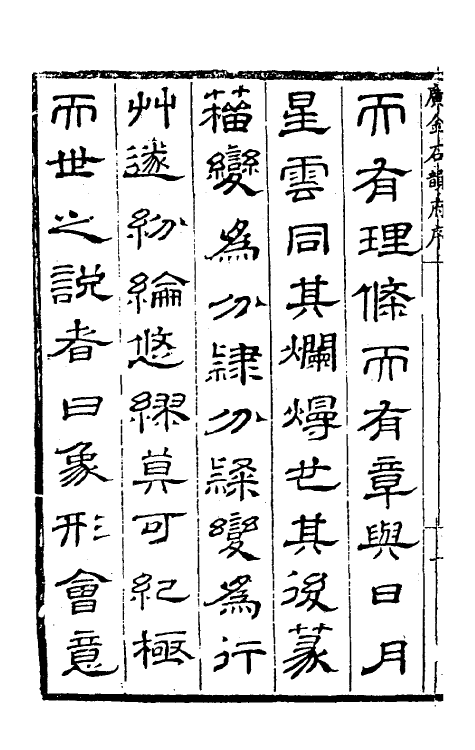 廣金石韻府序
而有理條而有章與日月
星雲同其爛熳也其後篆
籀變為分隸分隸變為行
艸遂紛綸悠繆莫可紀極
而世之說者曰象形會意